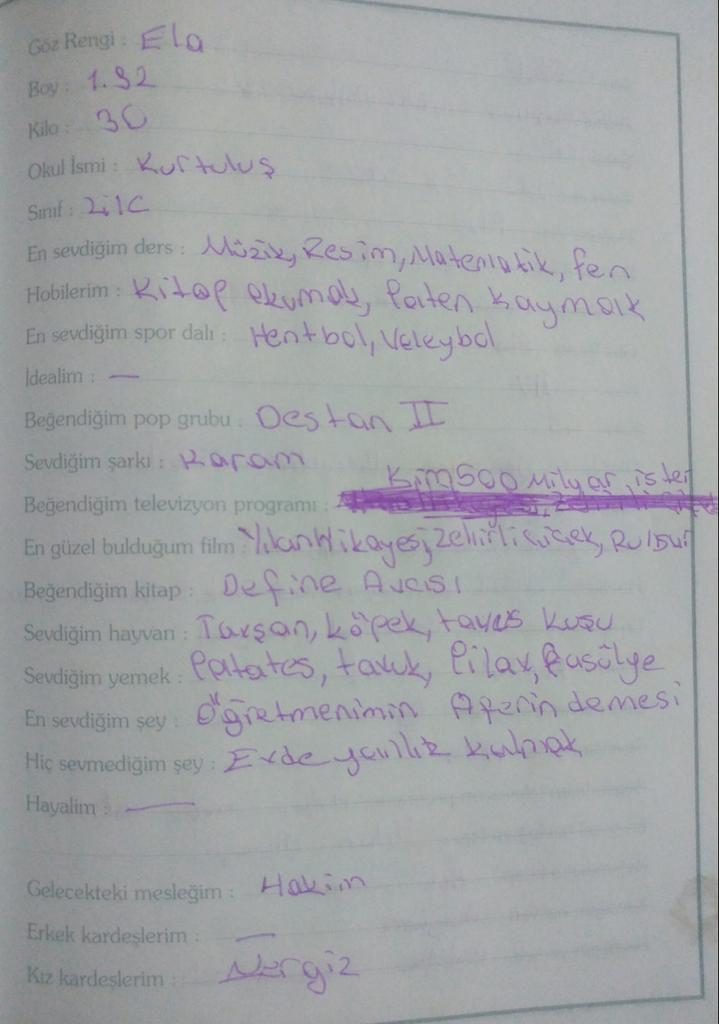 Göz Rengi : Ela
Boy : 1.32
Kilo : 30
Okul İsmi : Kurtuluş
Sınıf : 2/C
En sevdiğim ders : Müzik, Resim, Matematik, fen
Hobilerim : Kitap okumak, Paten kaymak
En sevdiğim spor dalı : Hentbol, Veleybol
İdealim : —
Beğendiğim pop grubu : Destan II
Sevdiğim şarkı : Karam
Kim 500 Milyar ister
Beğendiğim televizyon programı :
En güzel bulduğum film : Yılan Hikayesi, Zehirli Çiçek,
Beğendiğim kitap : Define Avcısı
Sevdiğim hayvan : Tavşan, köpek, tavus kuşu
Sevdiğim yemek : Patates, tavuk, Pilav, fasülye
En sevdiğim şey : Öğretmenimin Aferin demesi
Hiç sevmediğim şey : Evde kalmak
Hayalim : —
Gelecekteki mesleğim : Hakim
Erkek kardeşlerim : —
Kız kardeşlerim : Nergiz